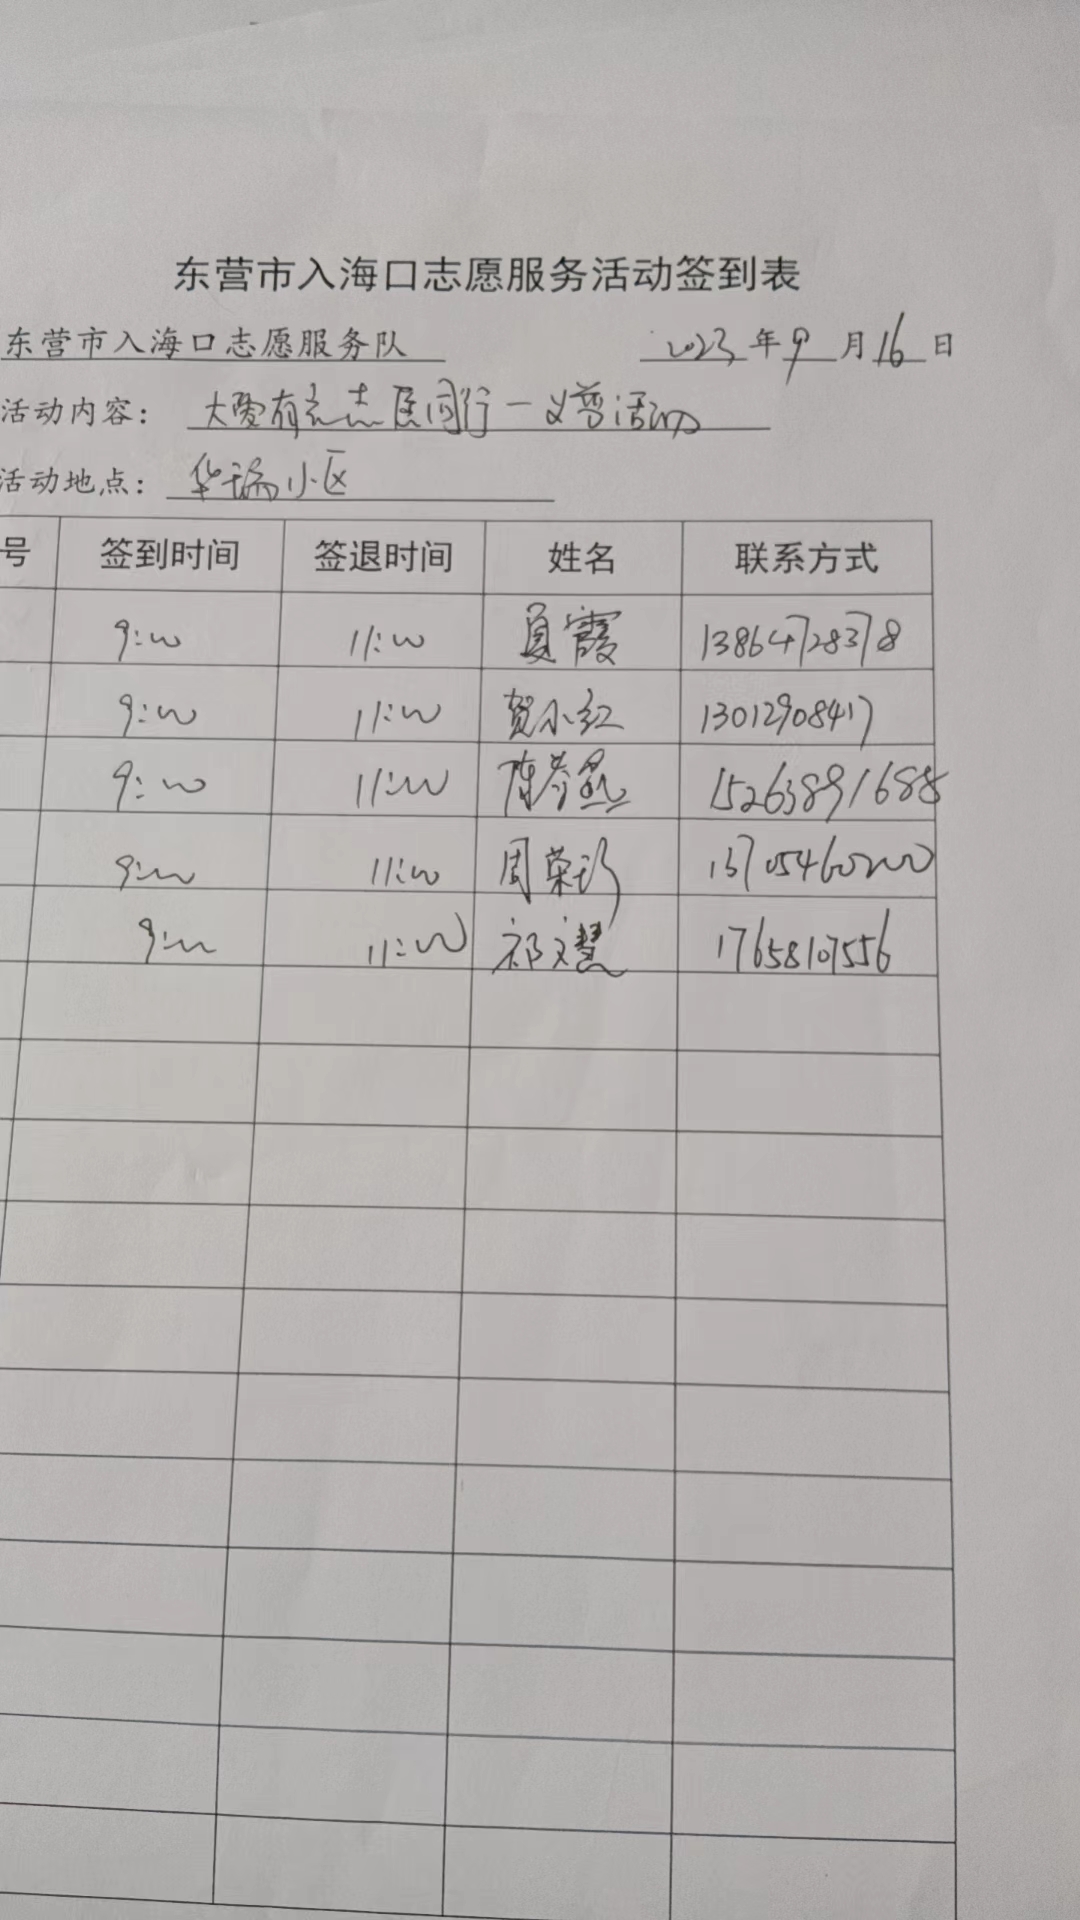 东营市入海口志愿服务活动签到表
东营市入海口志愿服务队 2023年9月16日
活动内容： 大爱有 志 同行一义剪活动
活动地点： 华瑞小区
号 签到时间 签退时间 姓名 联系方式
9:00 11:00 夏霞 13864728378
9:00 11:00 贺小红 13012908417
9:00 11:00 陈 燕 15263891688
9:00 11:00 周荣珍 13705460200
9:00 11:00 祁文慧 17658107556